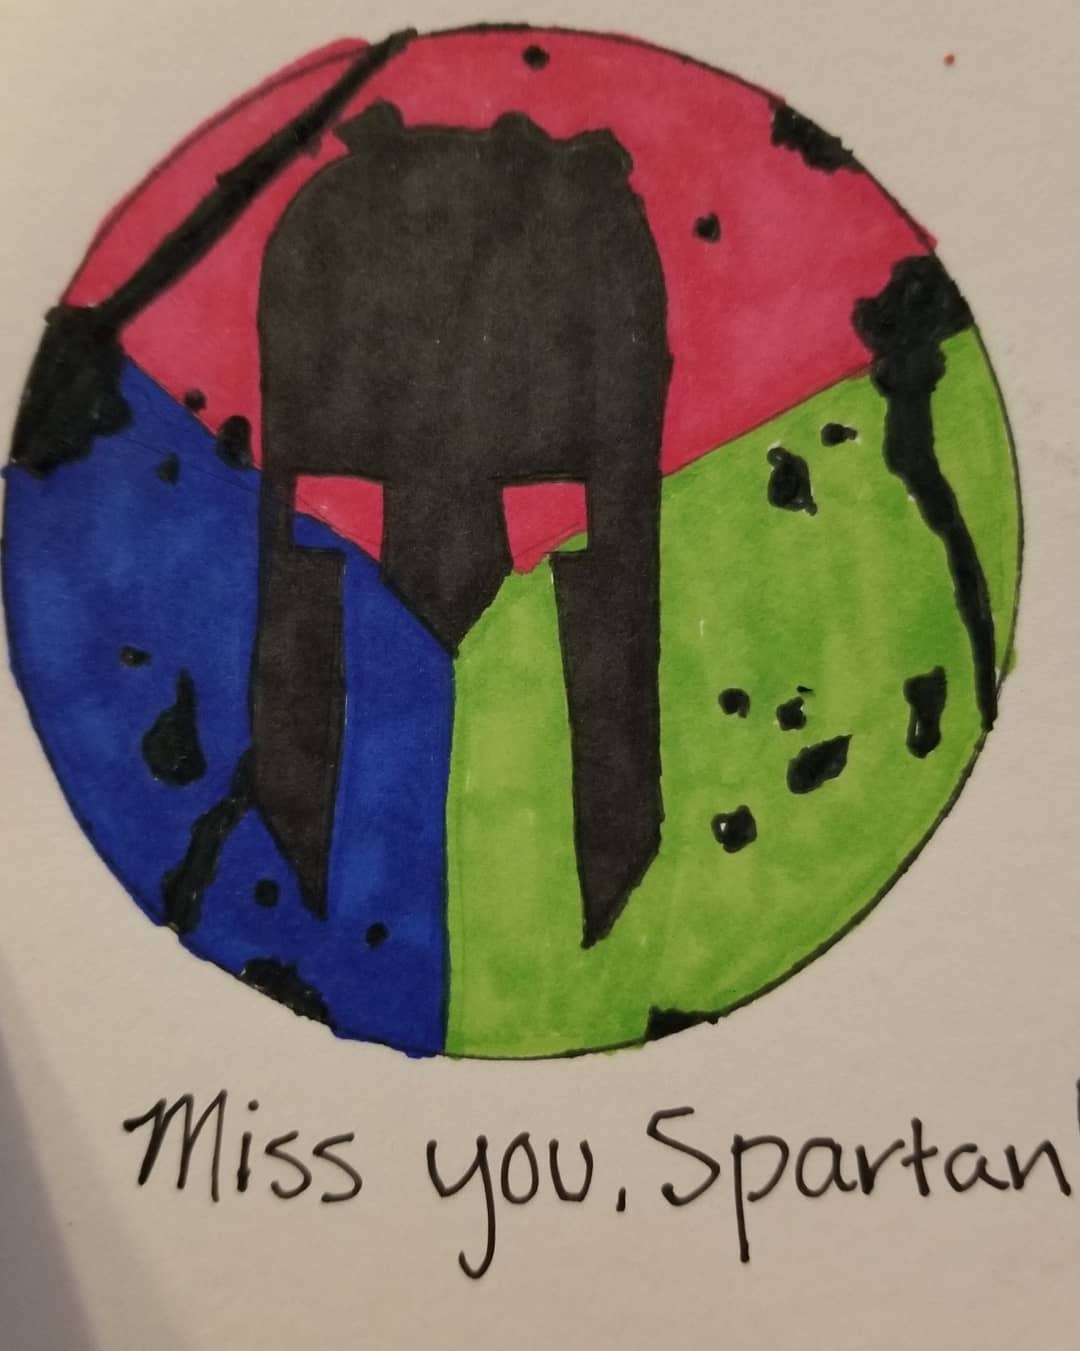 Miss you, Spartan!